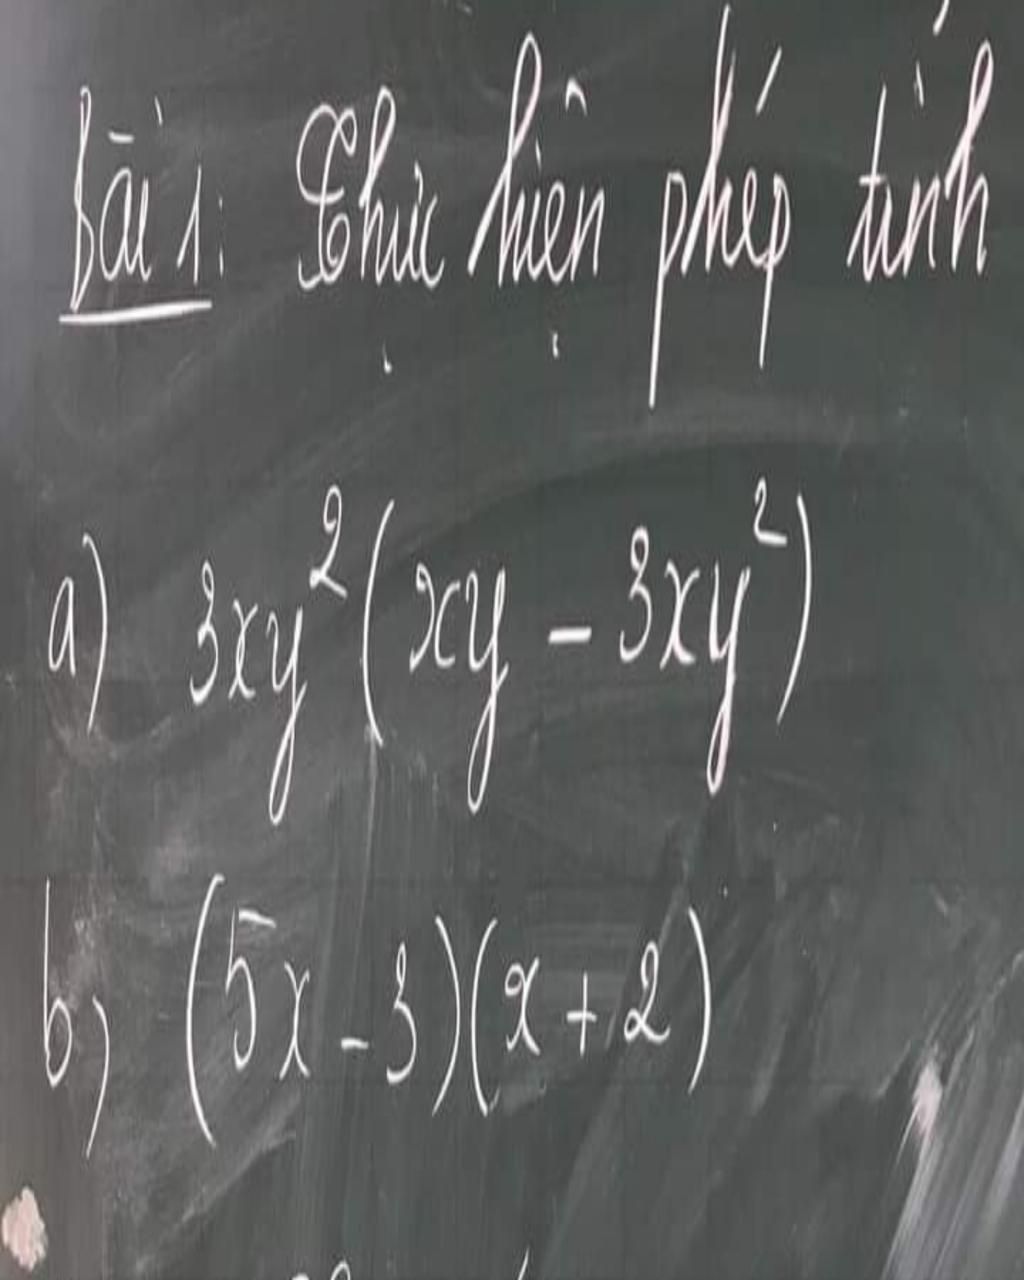 Bài 1: Thực hiện phép tính
a) 3xy²(xy - 3xy²)
b) (5x - 3)(x + 2)